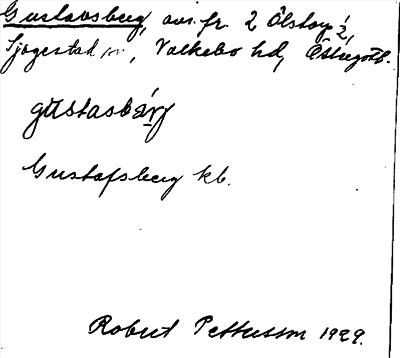 Gustavsberg, avs. fr. 2 Ölstorp ½,
Sjögestad sn, Valkebo hd, Östergötl.
gustasbärj
Gustafsberg kb.
Robert Pettersson 1929.